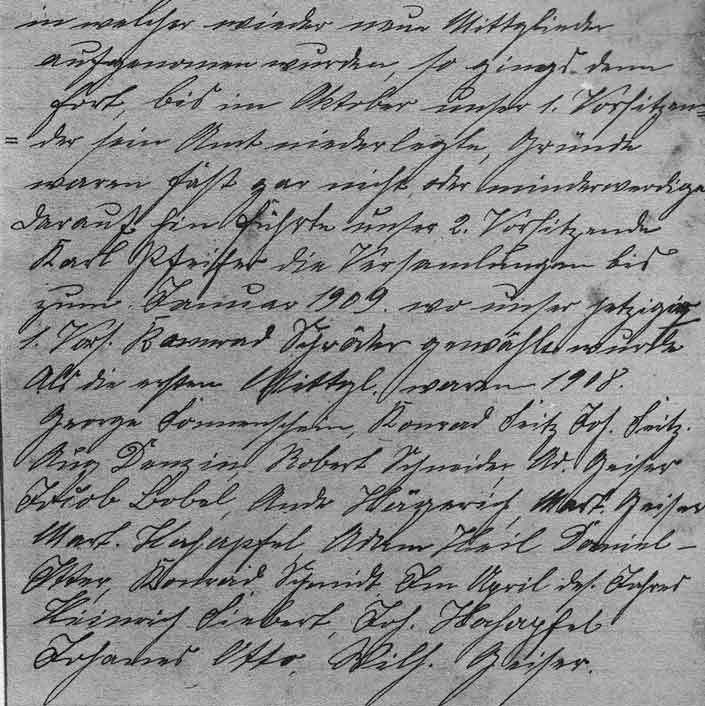 in welcher wieder neue Mittglieder
aufgenomen wurden, so gings denn
fort, bis im Oktober unser 1. Vorsitzen=
= der sein Amt niederlegte, Gründe
waren fast gar nicht, oder minderwerdige
darauf hin führte unser 2. Vorsitzende
Karl Pfeiffer die Versamlungen bis
zum Januar 1909. wo unser jetziger
1. Vors. Konrad Schröder gewählt wurde
Als die ersten Mittgl. waren 1908.
George Sonnenschein, Konrad Seitz Joh. Seitz.
Aug Denzin, Robert Schneider, Ad. Geiser
Jacob Bobel, Andr Hägerich, Mart. Geiser
Mart. Hahapfel, Adam Keil Daniel-
Otter, Konrad Schmidt, Im April des. Jahres
Heinrich Siebert, Joh. Hahapfel
Johanes Otto, Wilh. Geiser.